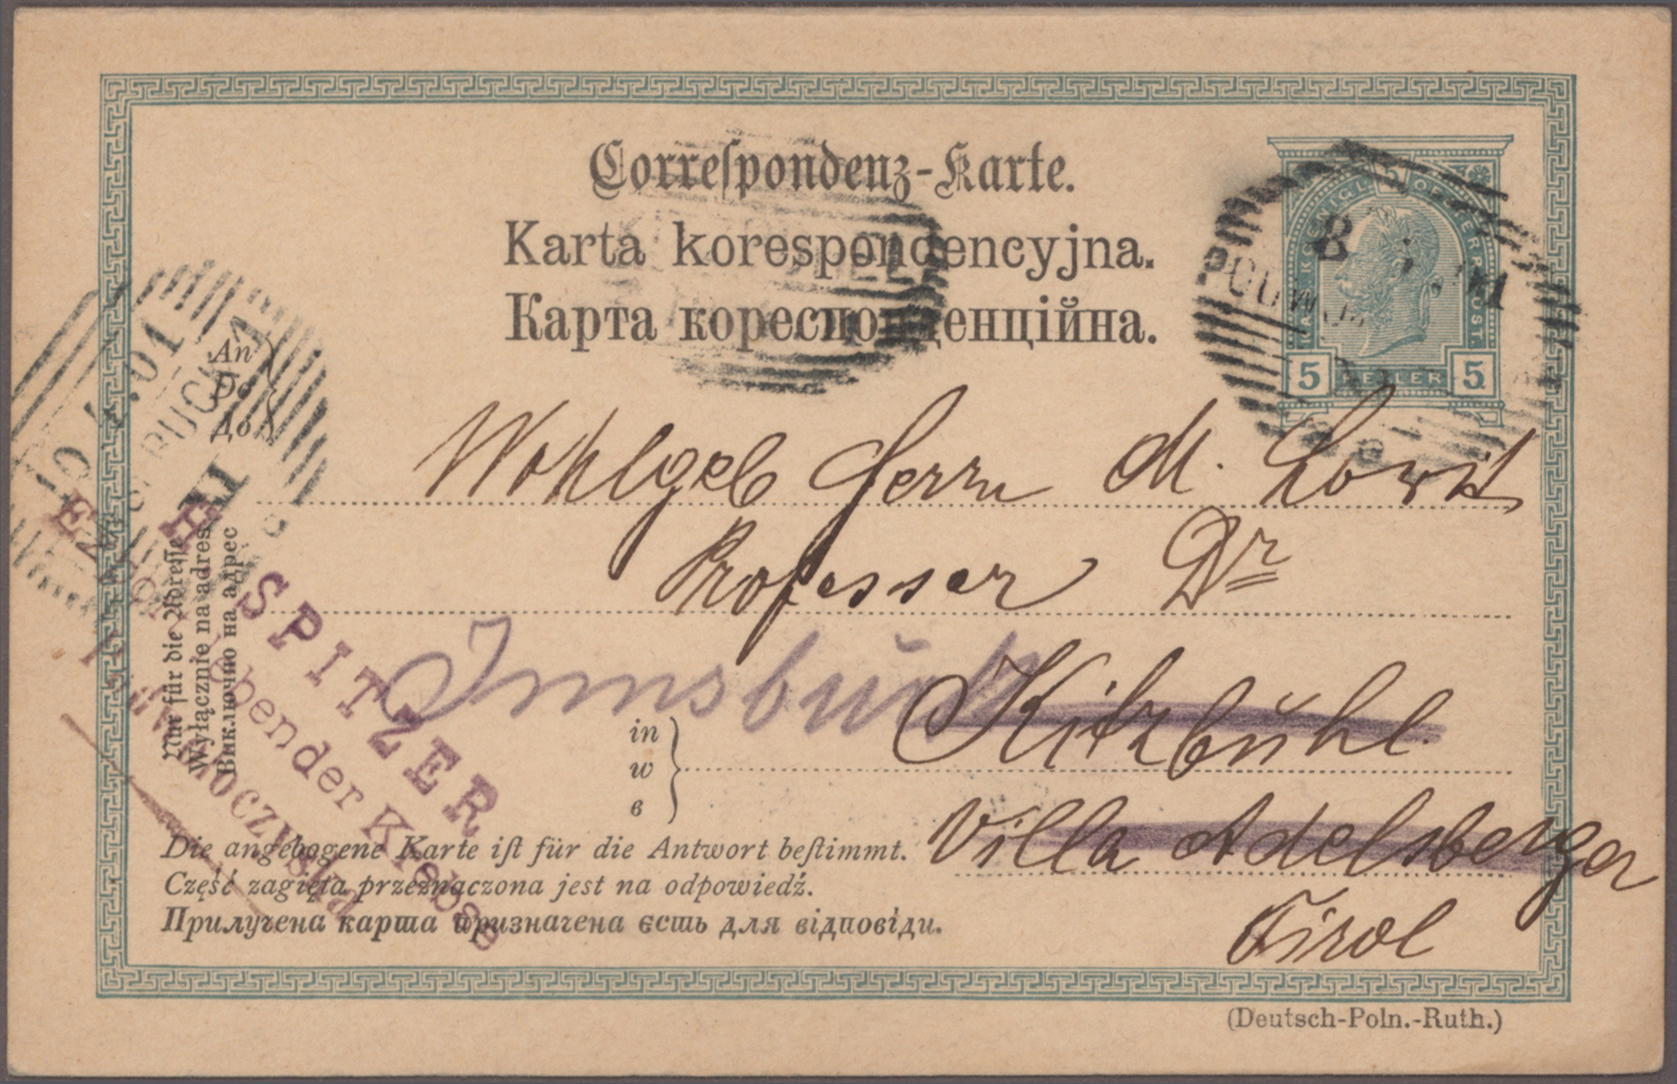 Correspondenz-Karte.
Karta korespondencyjna.
Карта кореспонденційна.
KAIS. KOENIGL. OESTERR. POST.
5 HELLER 5
8
10 4.01
INNSBRUCK 1
An
Do
До
Wohlgeb Herrn M. Lowit
Professer Dr
Innsbruck
in
w
в
Kitzbühl.
Villa Adelsberger
Tirol
Nur für die Adresse
Wyłącznie na adres
Виключно на адрес
H SPITZER
lebender Krebse
Podwołoczyska
Die angebogene Karte ist für die Antwort bestimmt.
Część zagięta przeznaczona jest na odpowiedź.
Прилучена карта призначена єсть для відповіди.
(Deutsch-Poln.-Ruth.)